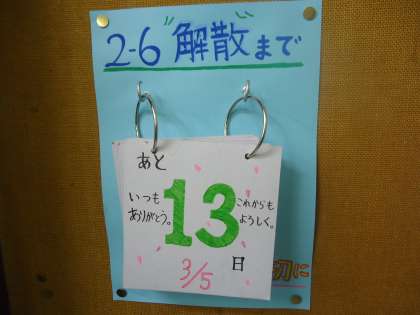 2-6"解散"まで
あと
いつも
ありがとう。
13
これからも
よろしく。
日
3/5
切に